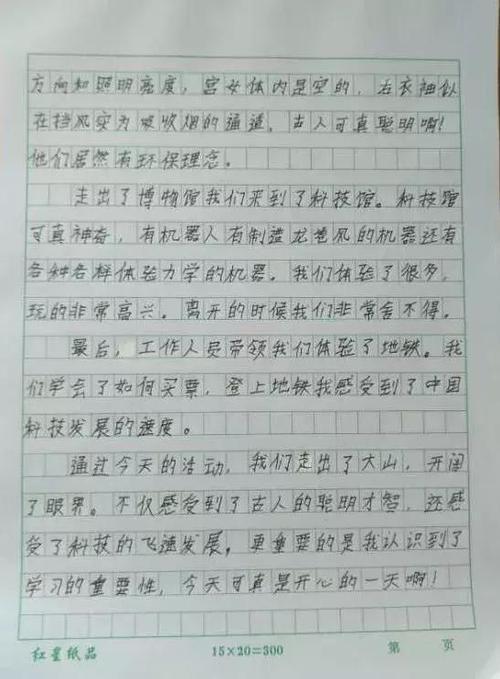 方向和照明亮度，宫女体内是空的，右衣袖似
在挡风实为吸收烟的通道。古人可真聪明啊！
他们居然有环保理念。
走出了博物馆我们来到了科技馆。科技馆
可真神奇，有机器人有制造龙卷风的机器还有
各种各样体验力学的机器。我们体验了很多，
玩的非常高兴。离开的时候我们非常舍不得。
最后，工作人员带领我们体验了地铁。我
们学会了如何买票，登上地铁我感受到了中国
科技发展的速度。
通过今天的活动，我们走出了大山，开阔
了眼界。不仅感受到了古人的聪明才智，还感
受了科技的飞速发展，更重要的是我认识到了
学习的重要性，今天可真是开心的一天啊！
红星纸品 15×20=300 第 页